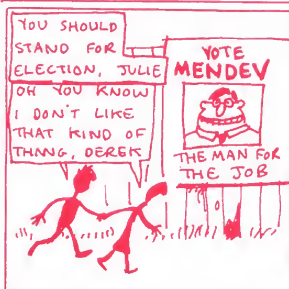 YOU SHOULD
STAND FOR
ELECTION, JULIE
OH YOU KNOW
I DON'T LIKE
THAT KIND OF
THNNG, DEREK
VOTE
MENDEV
THE MAN FOR
THE JOB